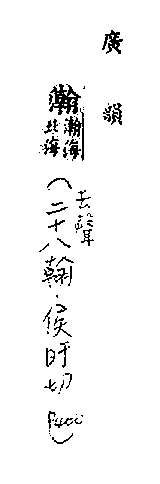 廣韻
瀚瀚海北海
(去聲二十八翰·侯旰切 P400)